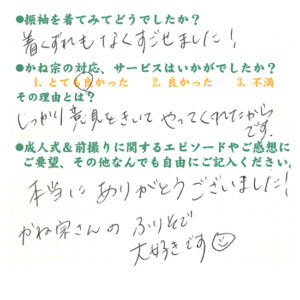 ●振袖を着てみてどうでしたか？
着くずれもなくすごせました！
●かね宗の対応、サービスはいかがでしたか？
1. とても良かった　2. 良かった　3. 不満
その理由とは？
しっかり意見をきいてやってくれたから
です。
●成人式＆前撮りに関するエピソードやご感想に
ご要望、その他なんでも自由にご記入ください。
本当にありがとうございました！
かね宗さんの ふりそで
大好きです